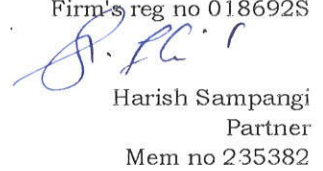 Firm's reg no 018692S
Harish Sampangi
Partner
Mem no 235382